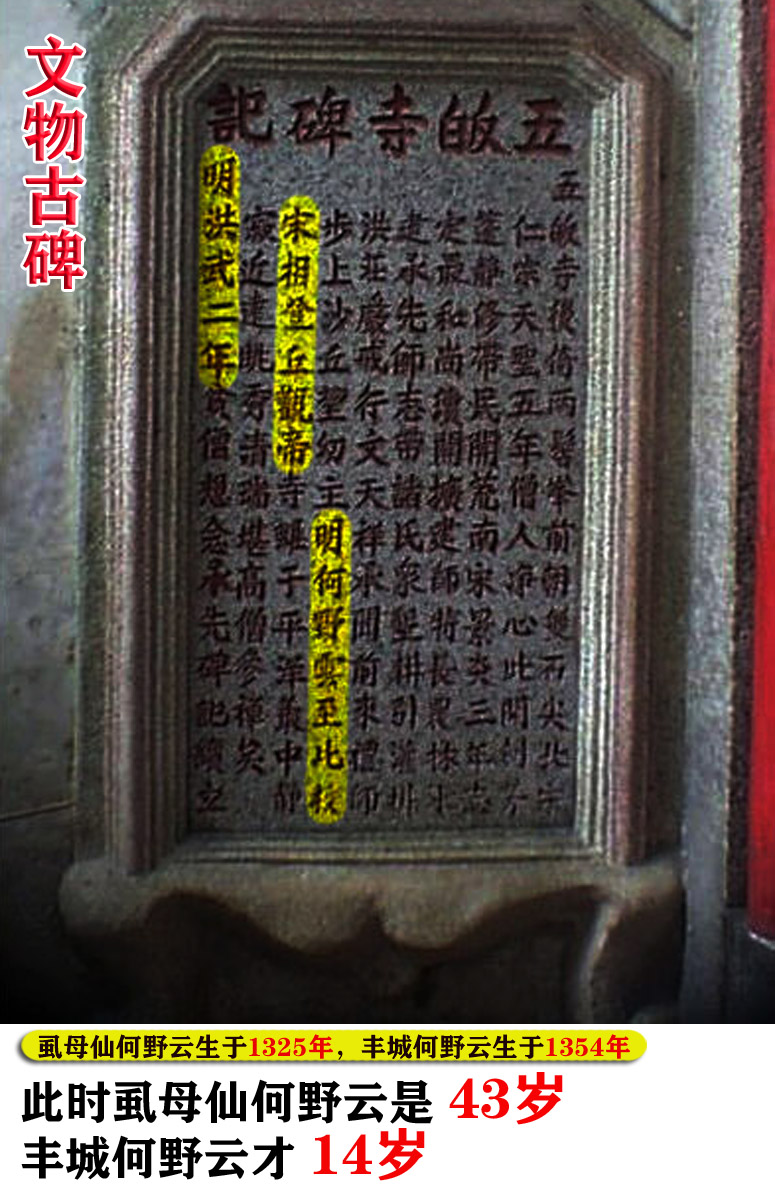 文物古碑
五皈寺碑記
五皈寺後倚兩髻峯前朝雙石尖北宋
仁宗天聖五年僧人淨心此開創
靜修帶民開荒南宋景炎三年志
定最和尚續開擴建師特長農林水
建承先師志帶諸氏衆墾耕引灌排
洪莊嚴戒行文天祥承間前來禮師
步上沙丘望幼主明何野雲至此教
宋相登丘觀帝寺雖于平年叢中靜
寂近建眺秀清瑞堪高僧參禪矣
明洪武二年貧僧想念承先碑記續立
虱母仙何野云生于1325年，丰城何野云生于1354年
此时虱母仙何野云是 43岁
丰城何野云才 14岁